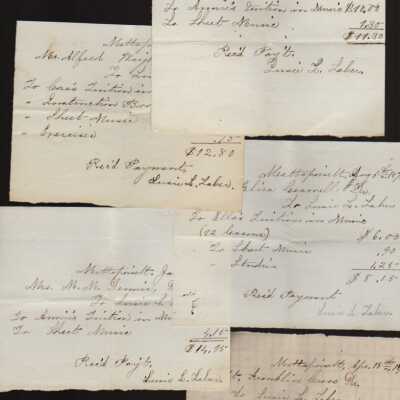 To Annie's Tuition in Music $10.00
To Sheet Music 1.30
$11.30
Rec'd Pay't.
Susie L. Taber
Mattapoisett
Mr. Alfred
To
To Cora's Tuition in
" Instruction Book
" Sheet Music
" Exercises .15
$12.80
Rec'd Payment
Susie L. Taber.
Mattapoisett, Aug
Dr.
To Susie L. Taber
To Ella's Tuition in Music
(12 lessons) $6.00
To Sheet Music .90
Studies 1.25
$8.15
Rec'd Payment
Susie L. Taber
Mattapoisett, Ja
Mrs. M. M. Dennis,
To Susie L.
To Annie's Tuition in Mu
To Sheet Music 3.15
$14.95
Rec'd Pay't.
Susie L. Taber
Mattapoisett, Apr. 18
Franklin Cross Dr.
To Susie L. Taber